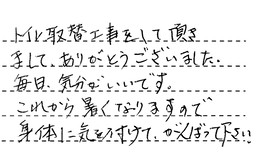 トイレ取替工事をして頂き
まして、ありがとうございました。
毎日、気分がいいです。
これから暑くなりますので
身体に気を付けて、がんばって下さい